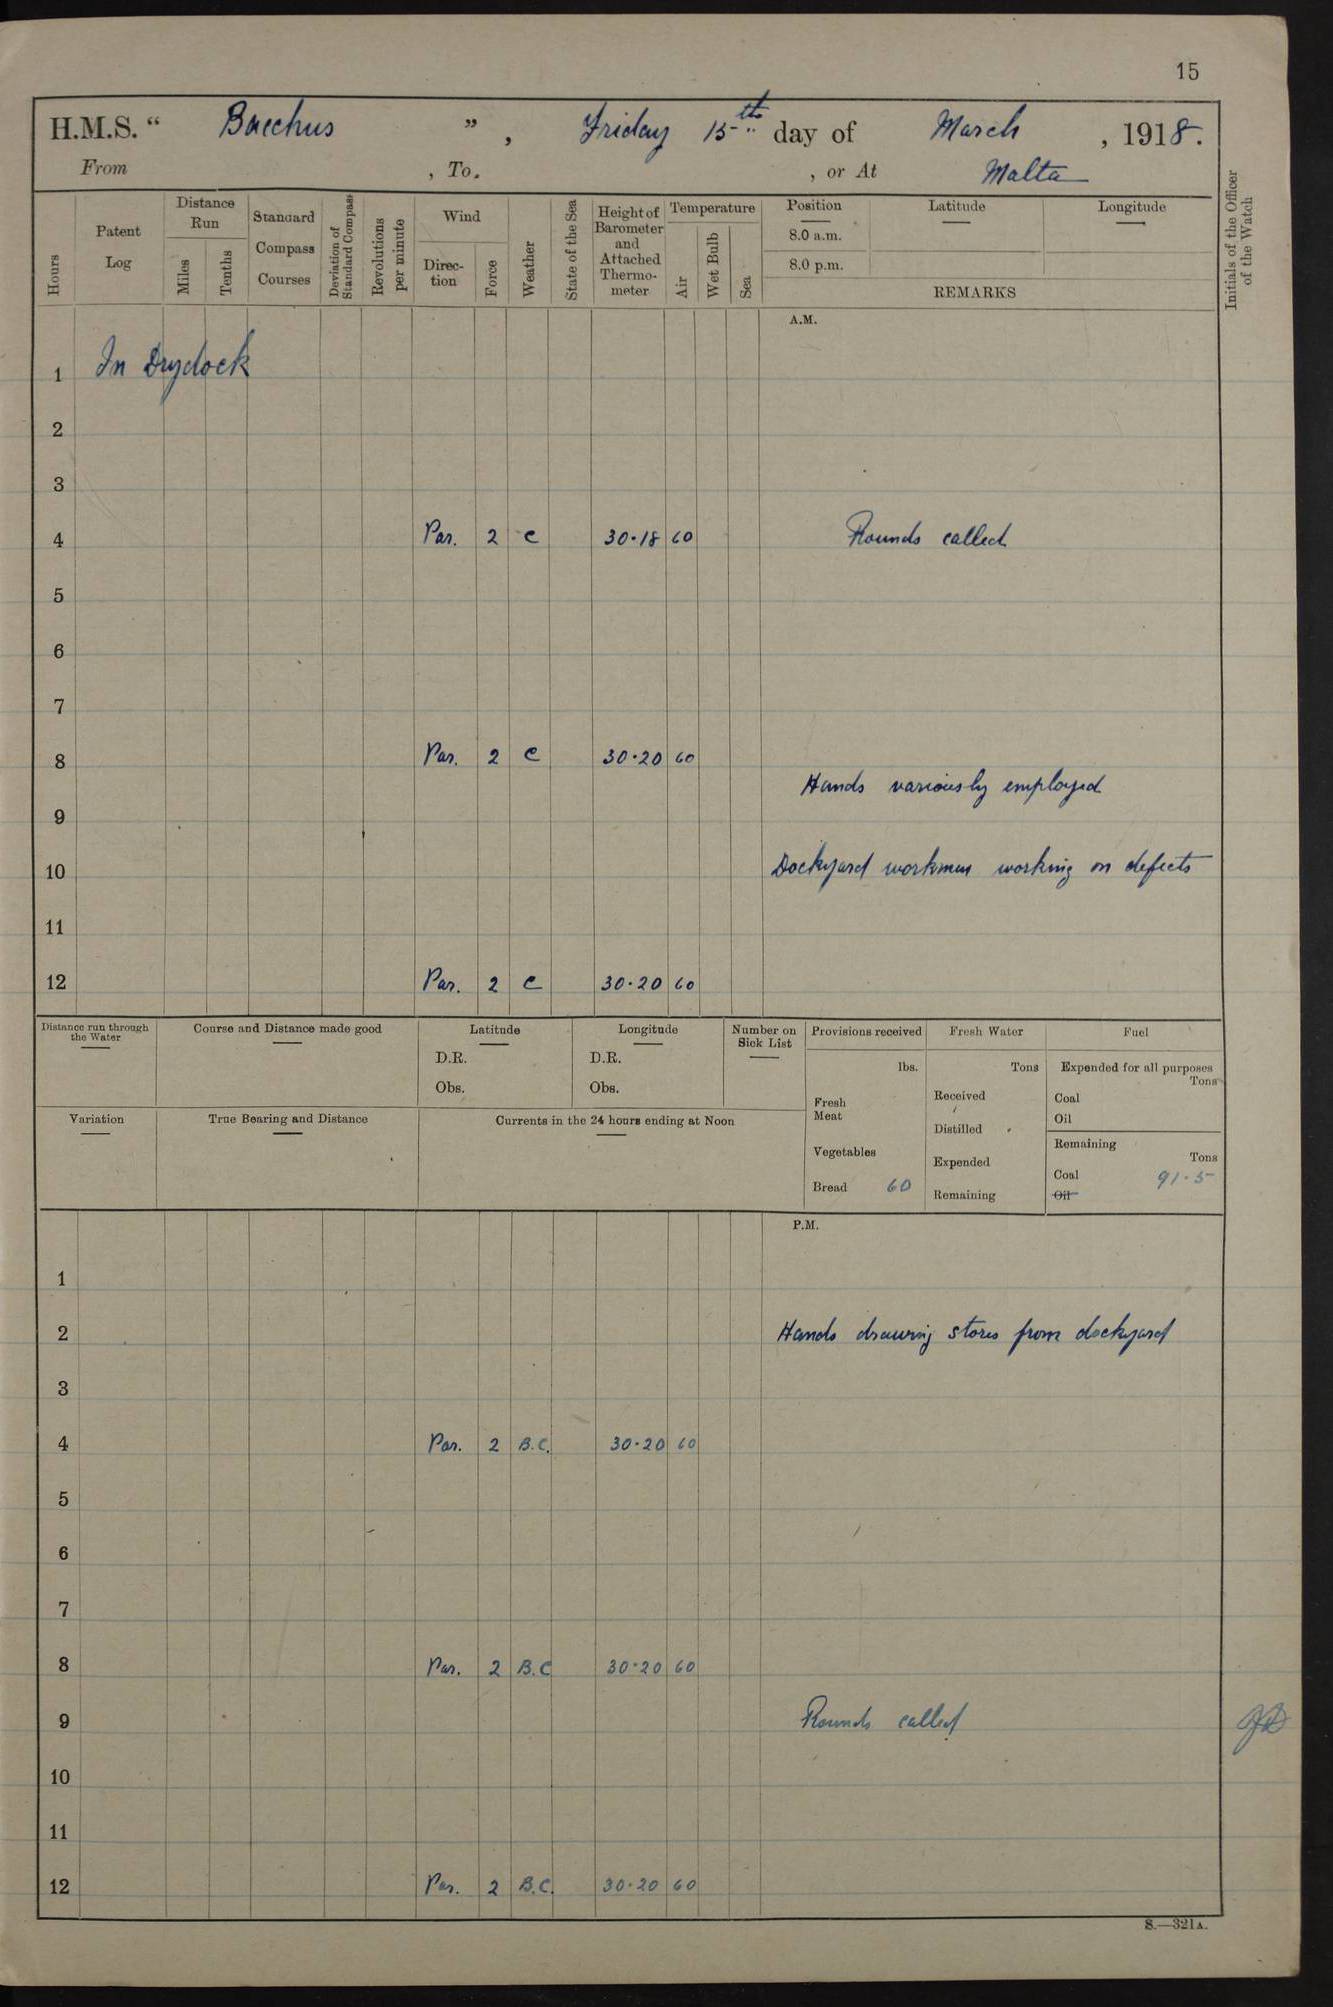 15
H.M.S. “ Bacchus ” , Friday 15th day of March , 1918.
From , To. , or At Malta
Hours
Patent Log
Distance Run
Miles
Tenths
Standard Compass Courses
Deviation of Standard Compass
Revolutions per minute
Wind
Direc-tion
Force
Weather
State of the Sea
Height of Barometer and Attached Thermo-meter
Temperature
Air
Wet Bulb
Sea
Position
8.0 a.m.
8.0 p.m.
Latitude
Longitude
REMARKS
Initials of the Officer of the Watch
A.M.
1 In Drydock
2
3
4 Par. 2 c 30·18 60 Rounds called
5
6
7
8 Par. 2 c 30·20 60
Hands variously employed
9
10 Dockyard workmen working on defects
11
12 Par. 2 c 30·20 60
Distance run through the Water
Course and Distance made good
Latitude
D.R.
Obs.
Longitude
D.R.
Obs.
Number on Sick List
Variation
True Bearing and Distance
Currents in the 24 hours ending at Noon
Provisions received
lbs.
Fresh Meat
Vegetables
Bread 60
Fresh Water
Tons
Received
Distilled
Expended
Remaining
Fuel
Expended for all purposes
Tons
Coal
Oil
Remaining
Tons
Coal 91·5
Oil
P.M.
1
2 Hands drawing stores from dockyard
3
4 Par. 2 B.C. 30·20 60
5
6
7
8 Par. 2 B.C 30·20 60
9 Rounds called
10
11
12 Par. 2 B.C. 30·20 60
S.—321A.